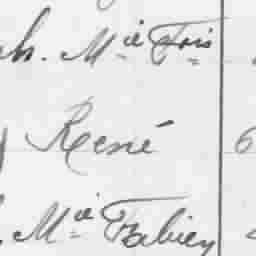 h. Mie Fois
René 6
Mie Fabien